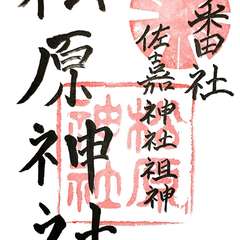 番社
佐嘉神社祖神
松原神社
松原神社